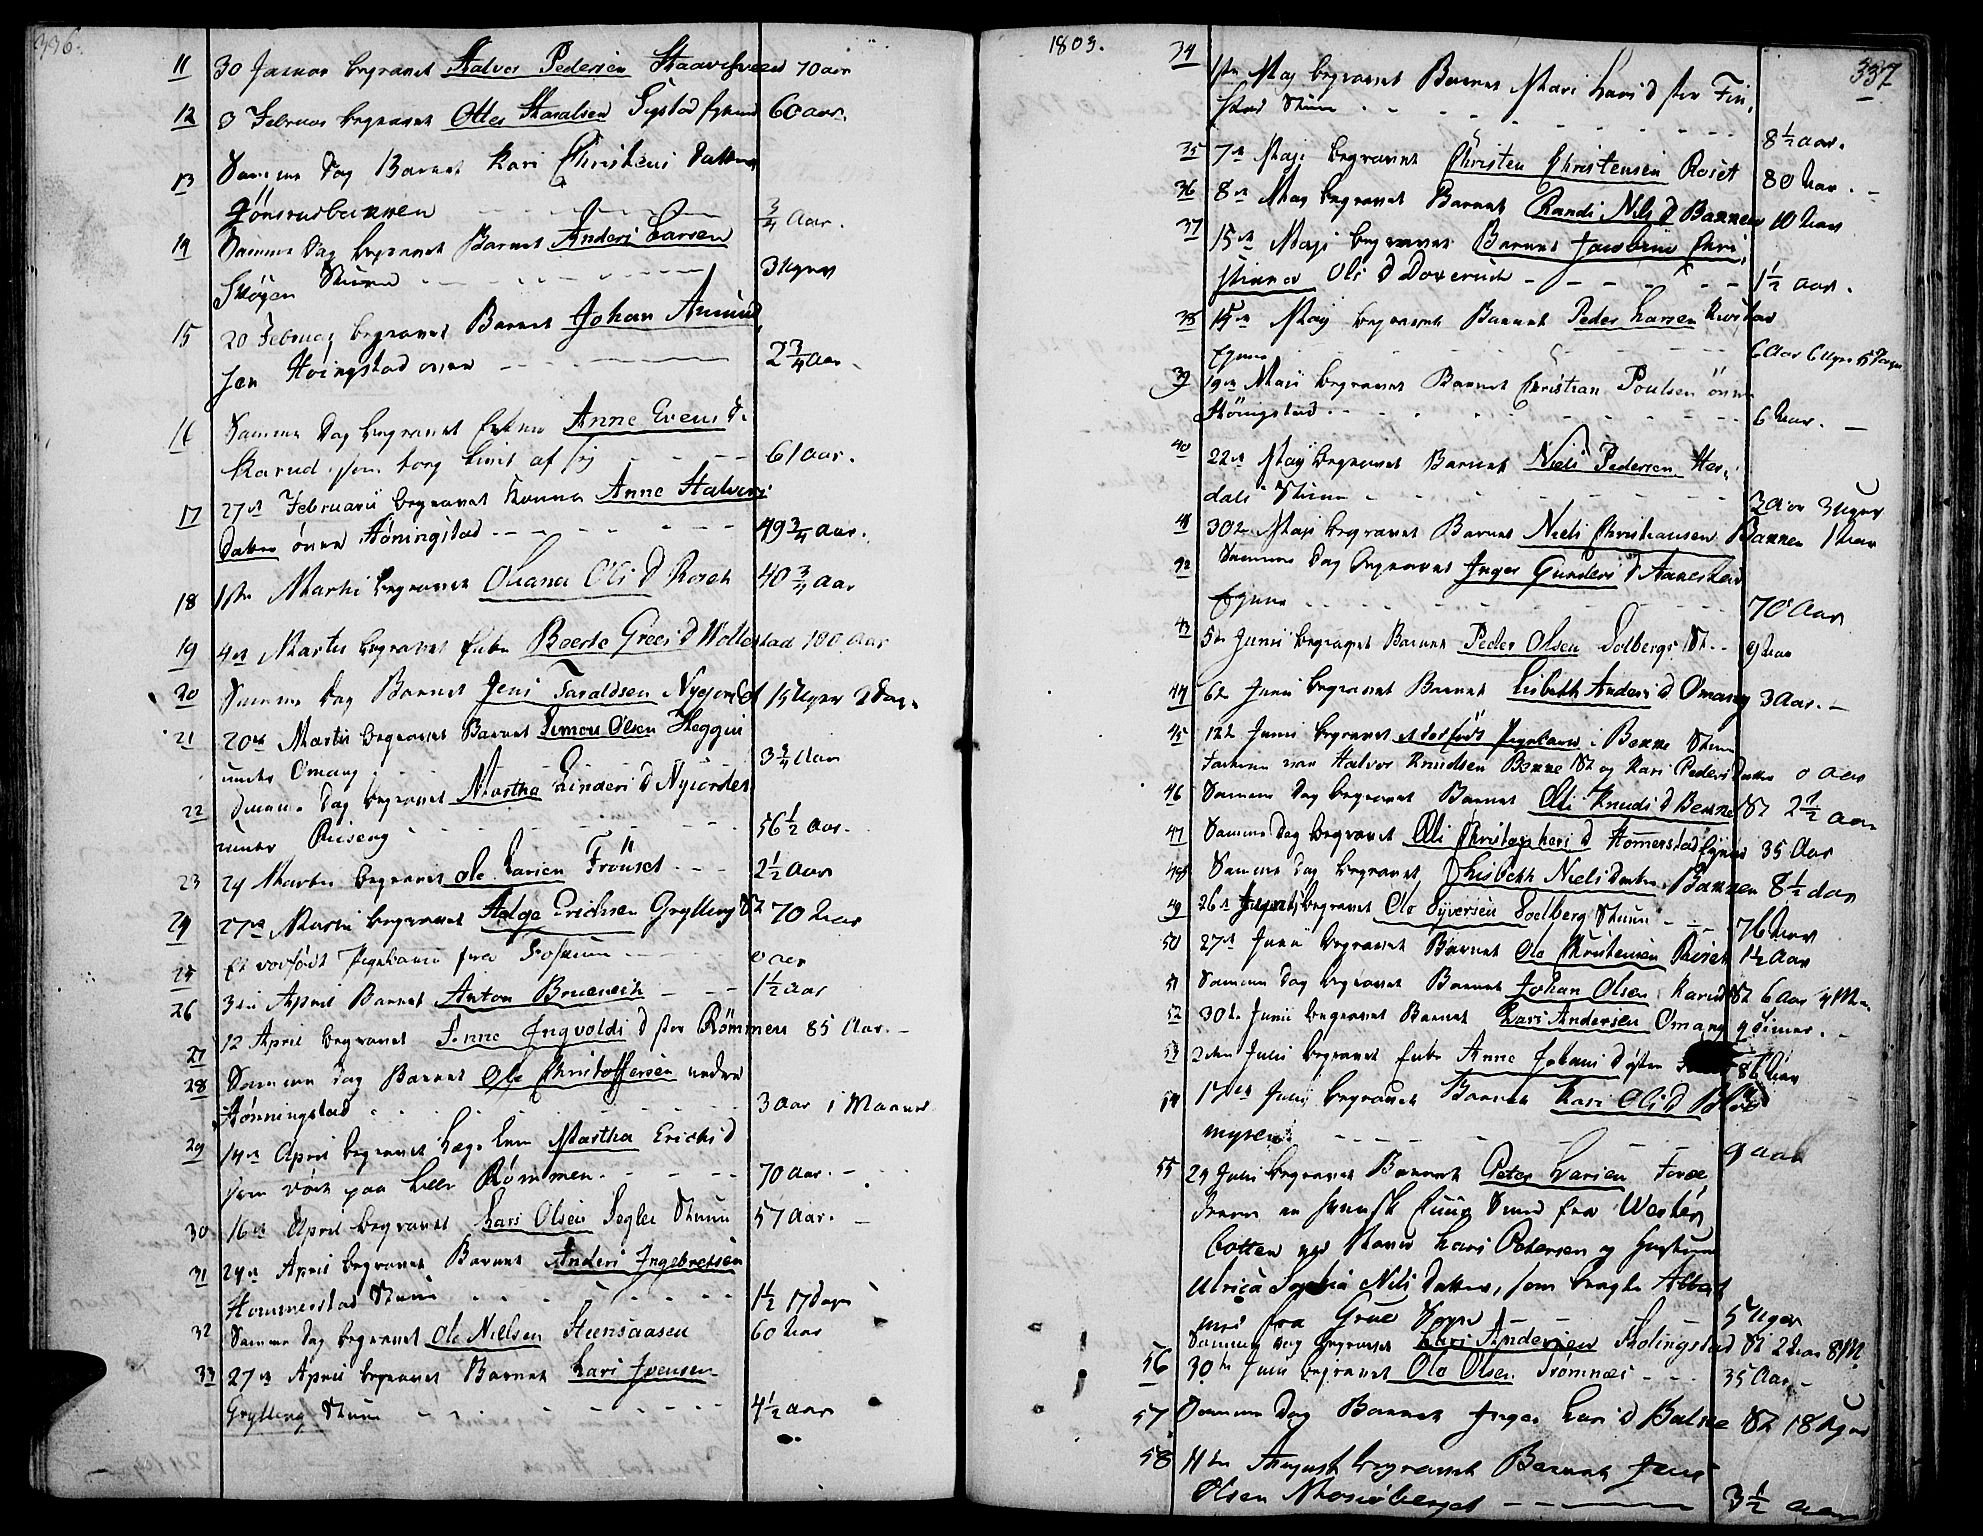 336.
11 30 Januar begravet Halvor Pedersen Haavelsrud 70 aar
12 3 Februar begravet Otter Haralsen Sigstad 60 aar.
13 Samme Dag Barnet Kari Christens datter
Jönsrudbakken 3/4 Aar.
14 Samme Dag begravet Barnet Anders Larsen
Skögen Stuen 3 Uger
15 20 Februar begravet Barnet Johan Amund
sen Höingstad 2 3/4 Aar
16 Samme Dag begravet Enken Anne Evens D.
Karud, som tog Livet af sig 61 aar.
17 27de Februarii begravet Konen Anne Halvors
Datter övre Höningstad 49 3/4 Aar.
18 1ste Martii begravet Oleana Ols D Roset 40 3/4 Aar
19 4de Martii begravet Enke Beerte Grees D Wollestad 100 Aar
20 Samme Dag Barnet Jens Taraldsen Nyejordet 15 Uger 2 Dag.
21 20de Martii begravet Barnet Simon Olsen Heggen
under Omang 3 3/4 Aar
22 Samme Dag begravet Martha Einders D Nyiordet
under Riiseng 56 1/2 Aar.
23 24 Martii begravet Ole Larsen Frönset 2 1/2 Aar
24 27de Martii begravet Helge Erichsen Grylling St 70 Aar
25 Et dödfödt Pigebarn fra 0 aar
26 3die April Barnet Anton Brueneck 1 1/2 Aar
27 12 April begravet Anne Ingvolds D Römmen 85 Aar.
28 Samme Dag Barnet Ole Christoffersen nedre
Hönningstad 3 Aar 1 Maaned
29 14de April begravet Martha Erichs D
som död paa Lille Römmen. 70 Aar.
30 16de April begravet Lars Olsen Segler Stuen 57 Aar.
31 24de April begravet Barnet Anders Ingebretsen
Hommerstad Stuen 1 1/2 17 Dage
32 Samme Dag begravet Ole Nielsen Steensaasen 60 Aar
33 27de April begravet Barnet Lars Joensen
Grylling Stuen 4 1/2 Aar
1803.
337
34 1ste Maj begravet Barnet Mari Lars D
Stuen 8 1/2 Aar.
35 7de Maji begravet Christen Christensen Roset 80 Aar.
36 8de Maj begravet Barnet Randi Nils D Bakken 10 Aar
37 15de Maji begravet Barnet Jacobine Chri
stiane Ols D Doverud 1 1/2 Aar.
38 15de Maij begravet Barnet Peder Larsen Rustad
Eyene 6 Aar 6 Uger 5 Dage
39 19de Maii begravet Barnet Christian Poulsen övre
Höningstad. 6 Aar.
40 22de Maij begravet Barnet Niels Pedersen Har
dals Stuen 3 Aar 3 Uger
41 30te Maji begravet Barnet Niels Christiansen Bakken 1 Aar
42 Samme Dag begravet Inger Gunders D Aanestad
Eyene 70 Aar
43 5te Junii begravet Barnet Peder Olsen Solbergs St. 9 Aar
44 6te Junii begravet Barnet Lisbeth Anders D Omang 3 Aar.
45 12te Junii begravet et dödfödt Pigebarn i Benne Stuen
Faderen var Halvor Knudsen Benne St og Kari Peders datter 0 Aar
46 Samme Dag begravet Barnet Oli Knuds D Benne St 2 1/2 Aar
47 Samme Dag begravet Oli Christophers D Homerstad Eyene 35 Aar
48 Samme Dag begravet Lisbeth Niels Datter Bakken 8 1/2 dag
49 26de Junii begravet Ole Syversen Soelberg Stuen 76 Aar
50 27de Junii begravet Barnet Ole Christensen Riiset 1 1/2 Aar
51 Samme Dag begravet Barnet Johan Olsen Karud St 6 Aar 4 M
52 30te Junii begravet Barnet Lars Andersen Omang 9 Timer.
53 2den Julii begravet Enke Anne Johans D östre 86 Aar
54 17de Julij begravet Barnet Kari Ols D
myren 9 Aar
55 24 Julii begravet Barnet Peter Larsen
en svensk fra Wester
botten ved Navn Lars Petersen og Hustrue
Ulrica Sophia Nils datter, som bragte Attest
med fra Grue Sogn 5 Uger
Samme Dag begravet Lars Andersen Holingstad St 2 Aar 8 M.
56 30te Julii begravet Ole Olsen Trömnæs 35 Aar
57 Samme Dag Barnet Inger Lars D Balke St 18 Uger
58 11te August begravet Barnet Jens
Olsen Mosiöberget 3 1/2 Aar